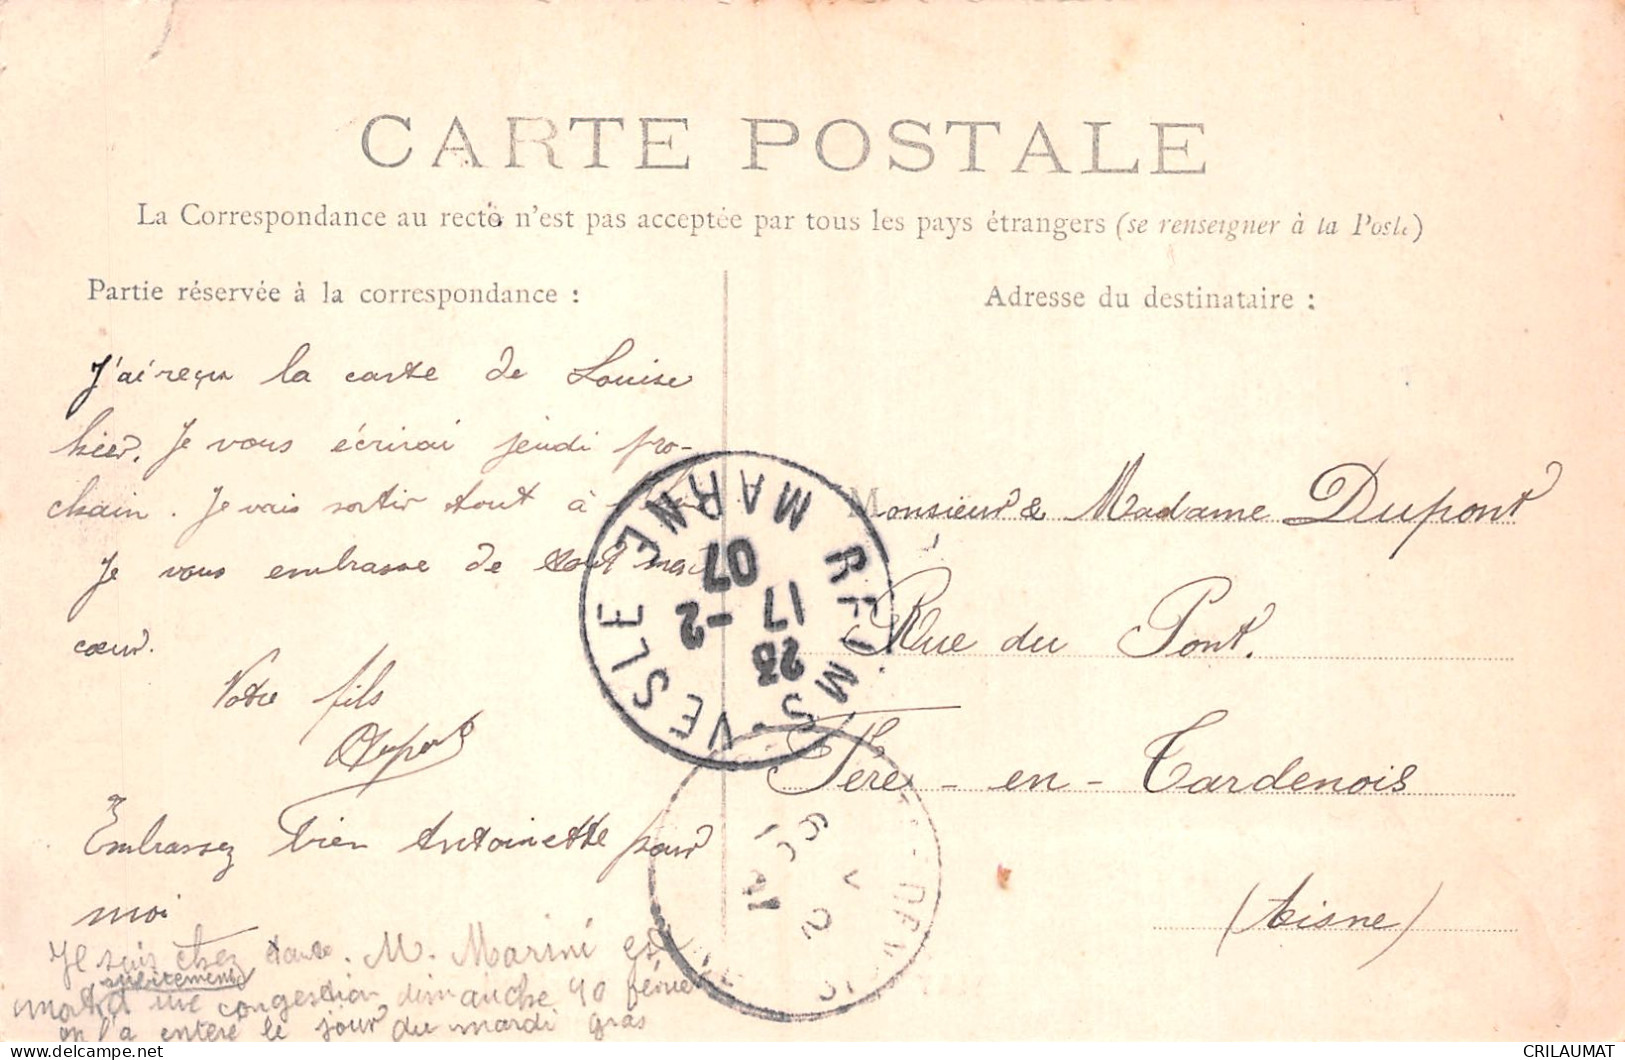 CARTE POSTALE
La Correspondance au recto n'est pas acceptée par tous les pays étrangers (se renseigner à la Poste)
Partie réservée à la correspondance :
J'ai reçu la carte de Louise
hier. Je vous écrirai jeudi pro-
chain. Je vais sortir tout à
Je vous embrasse de tout mon
cœur.
Votre fils
Dupont
Embrassez bien Antoinette pour
moi
Je suis chez M. Marini est
subitement
mort d'une congestion dimanche 10 février
on l'a enteré le jour du mardi gras
Adresse du destinataire :
Monsieur & Madame Dupont
Rue du Pont.
Fère-en-Tardenois
(Aisne)
REIMS-VESLE MARNE
23
17 -2
07
CRILAUMAT